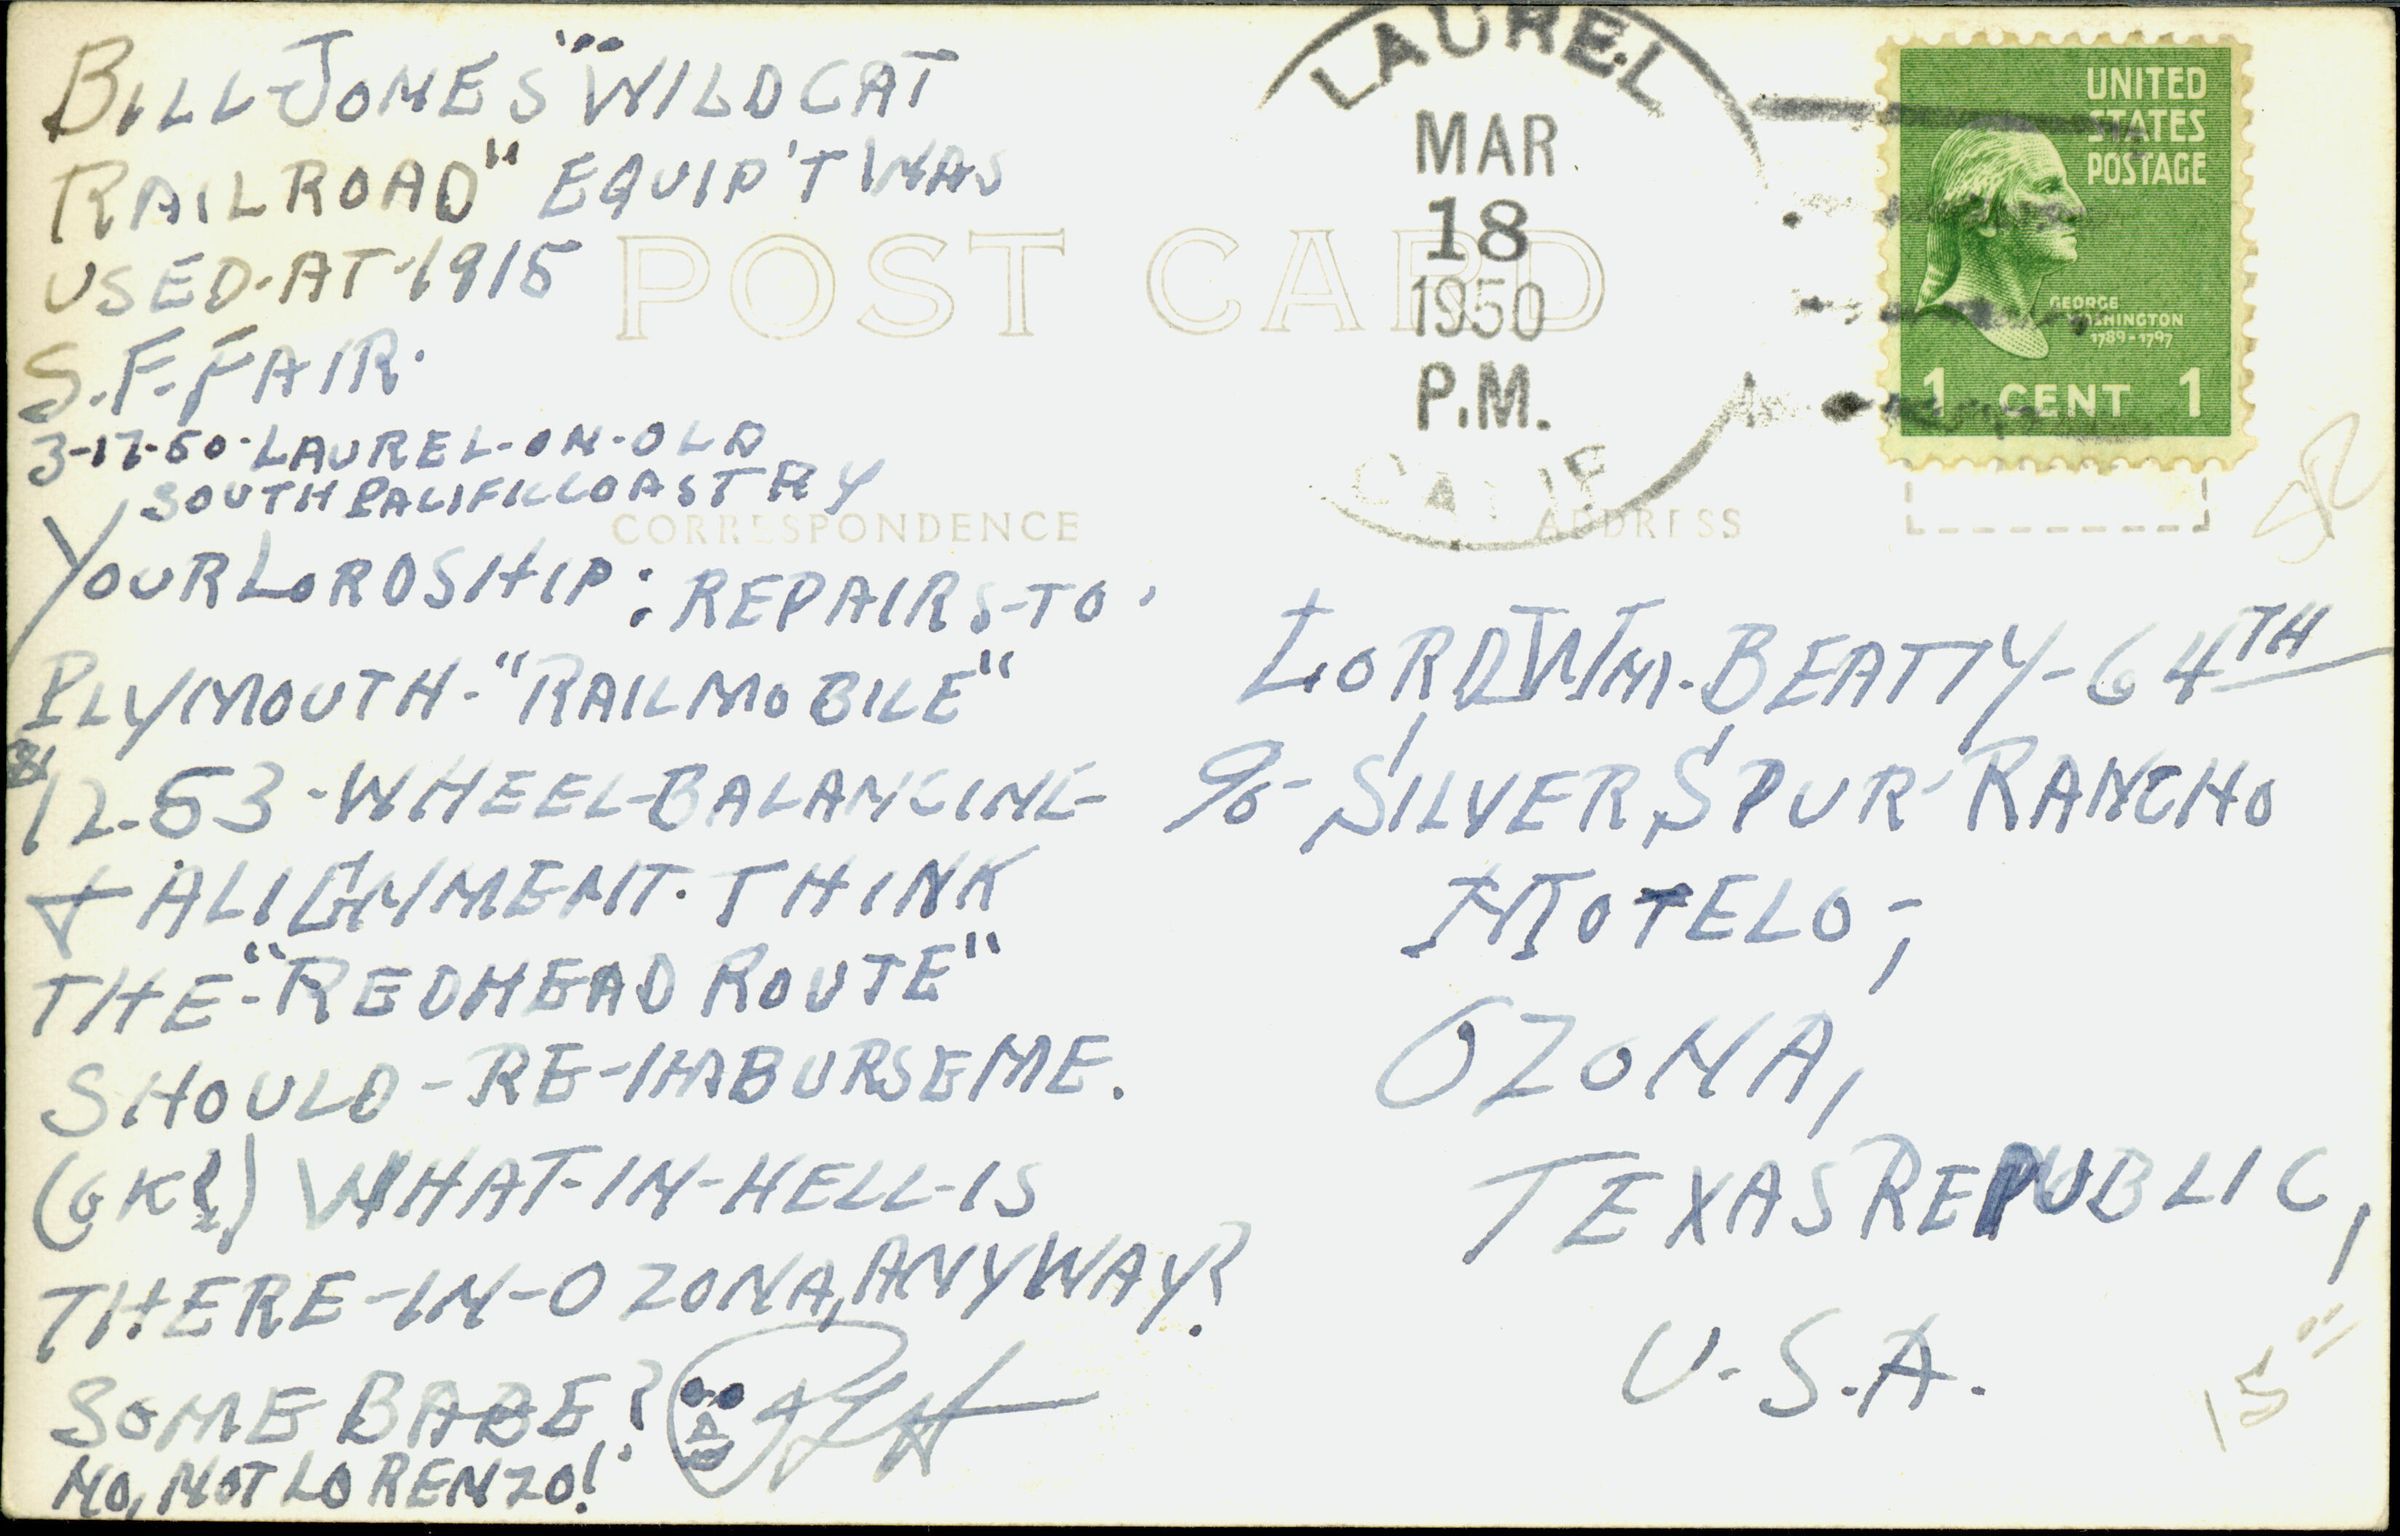 BILL JONES "WILDCAT
RAILROAD" EQUIP'T WAS
USED-AT-1915
S.F. FAIR.
3-17-50-LAUREL-ON-OLD
SOUTH PACIFIC COAST RY
YOUR LORDSHIP: REPAIRS-TO
PLYMOUTH-"RAILMOBILE"
$12.53-WHEEL-BALANCING
& ALIGNMENT. THINK
THE-"REDHEAD ROUTE"
SHOULD-RE-IMBURSE ME.
(OK?) WHAT-IN-HELL-IS
THERE-IN-OZONA, ANYWAY?
SOME BABE?
NO, NOT LORENZO!
POST CARD
CORRESPONDENCE
ADDRESS
LAUREL
MAR
18
1950
P.M.
CALIF
UNITED
STATES
POSTAGE
GEORGE
WASHINGTON
1789-1797
1 CENT 1
LORD WM. BEATTY-64TH
%-SILVER SPUR RANCHO
MOTELO-,
OZONA,
TEXAS REPUBLIC,
U.S.A.
15"